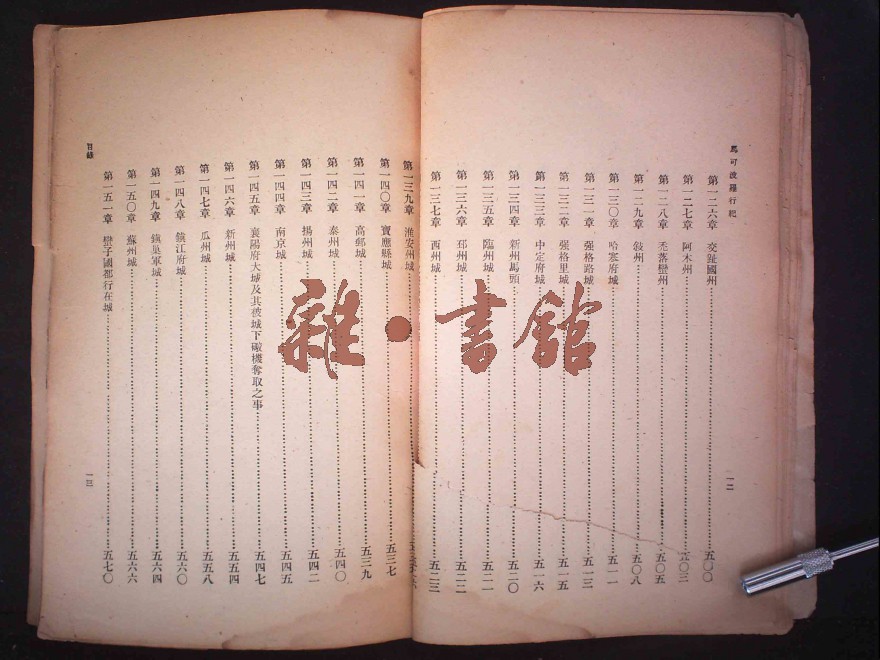 馬可波羅行紀
第一二六章 交趾國州 五〇〇
第一二七章 阿木州 五〇三
第一二八章 禿落蠻州 五〇五
第一二九章 敍州 五〇八
第一三〇章 哈寒府城 五一一
第一三一章 强格路城 五一三
第一三二章 强格里城 五一五
第一三三章 中定府城 五一六
第一三四章 新州馬頭 五二〇
第一三五章 臨州城 五二一
第一三六章 邳州城 五二二
第一三七章 西州城 五二三
一二
第一三九章 淮安州城
第一四〇章 寶應縣城 五三七
第一四一章 高郵城 五三九
第一四二章 泰州城 五四〇
第一四三章 揚州城 五四二
第一四四章 南京城 五四五
第一四五章 襄陽府大城及其被城下礮機奪取之事 五四七
第一四六章 新州城 五五四
第一四七章 瓜州城 五五八
第一四八章 鎮江府城 五六〇
第一四九章 鎮巢軍城 五六四
第一五〇章 蘇州城 五六六
第一五一章 蠻子國都行在城 五七〇
目錄
一三
雜•書館